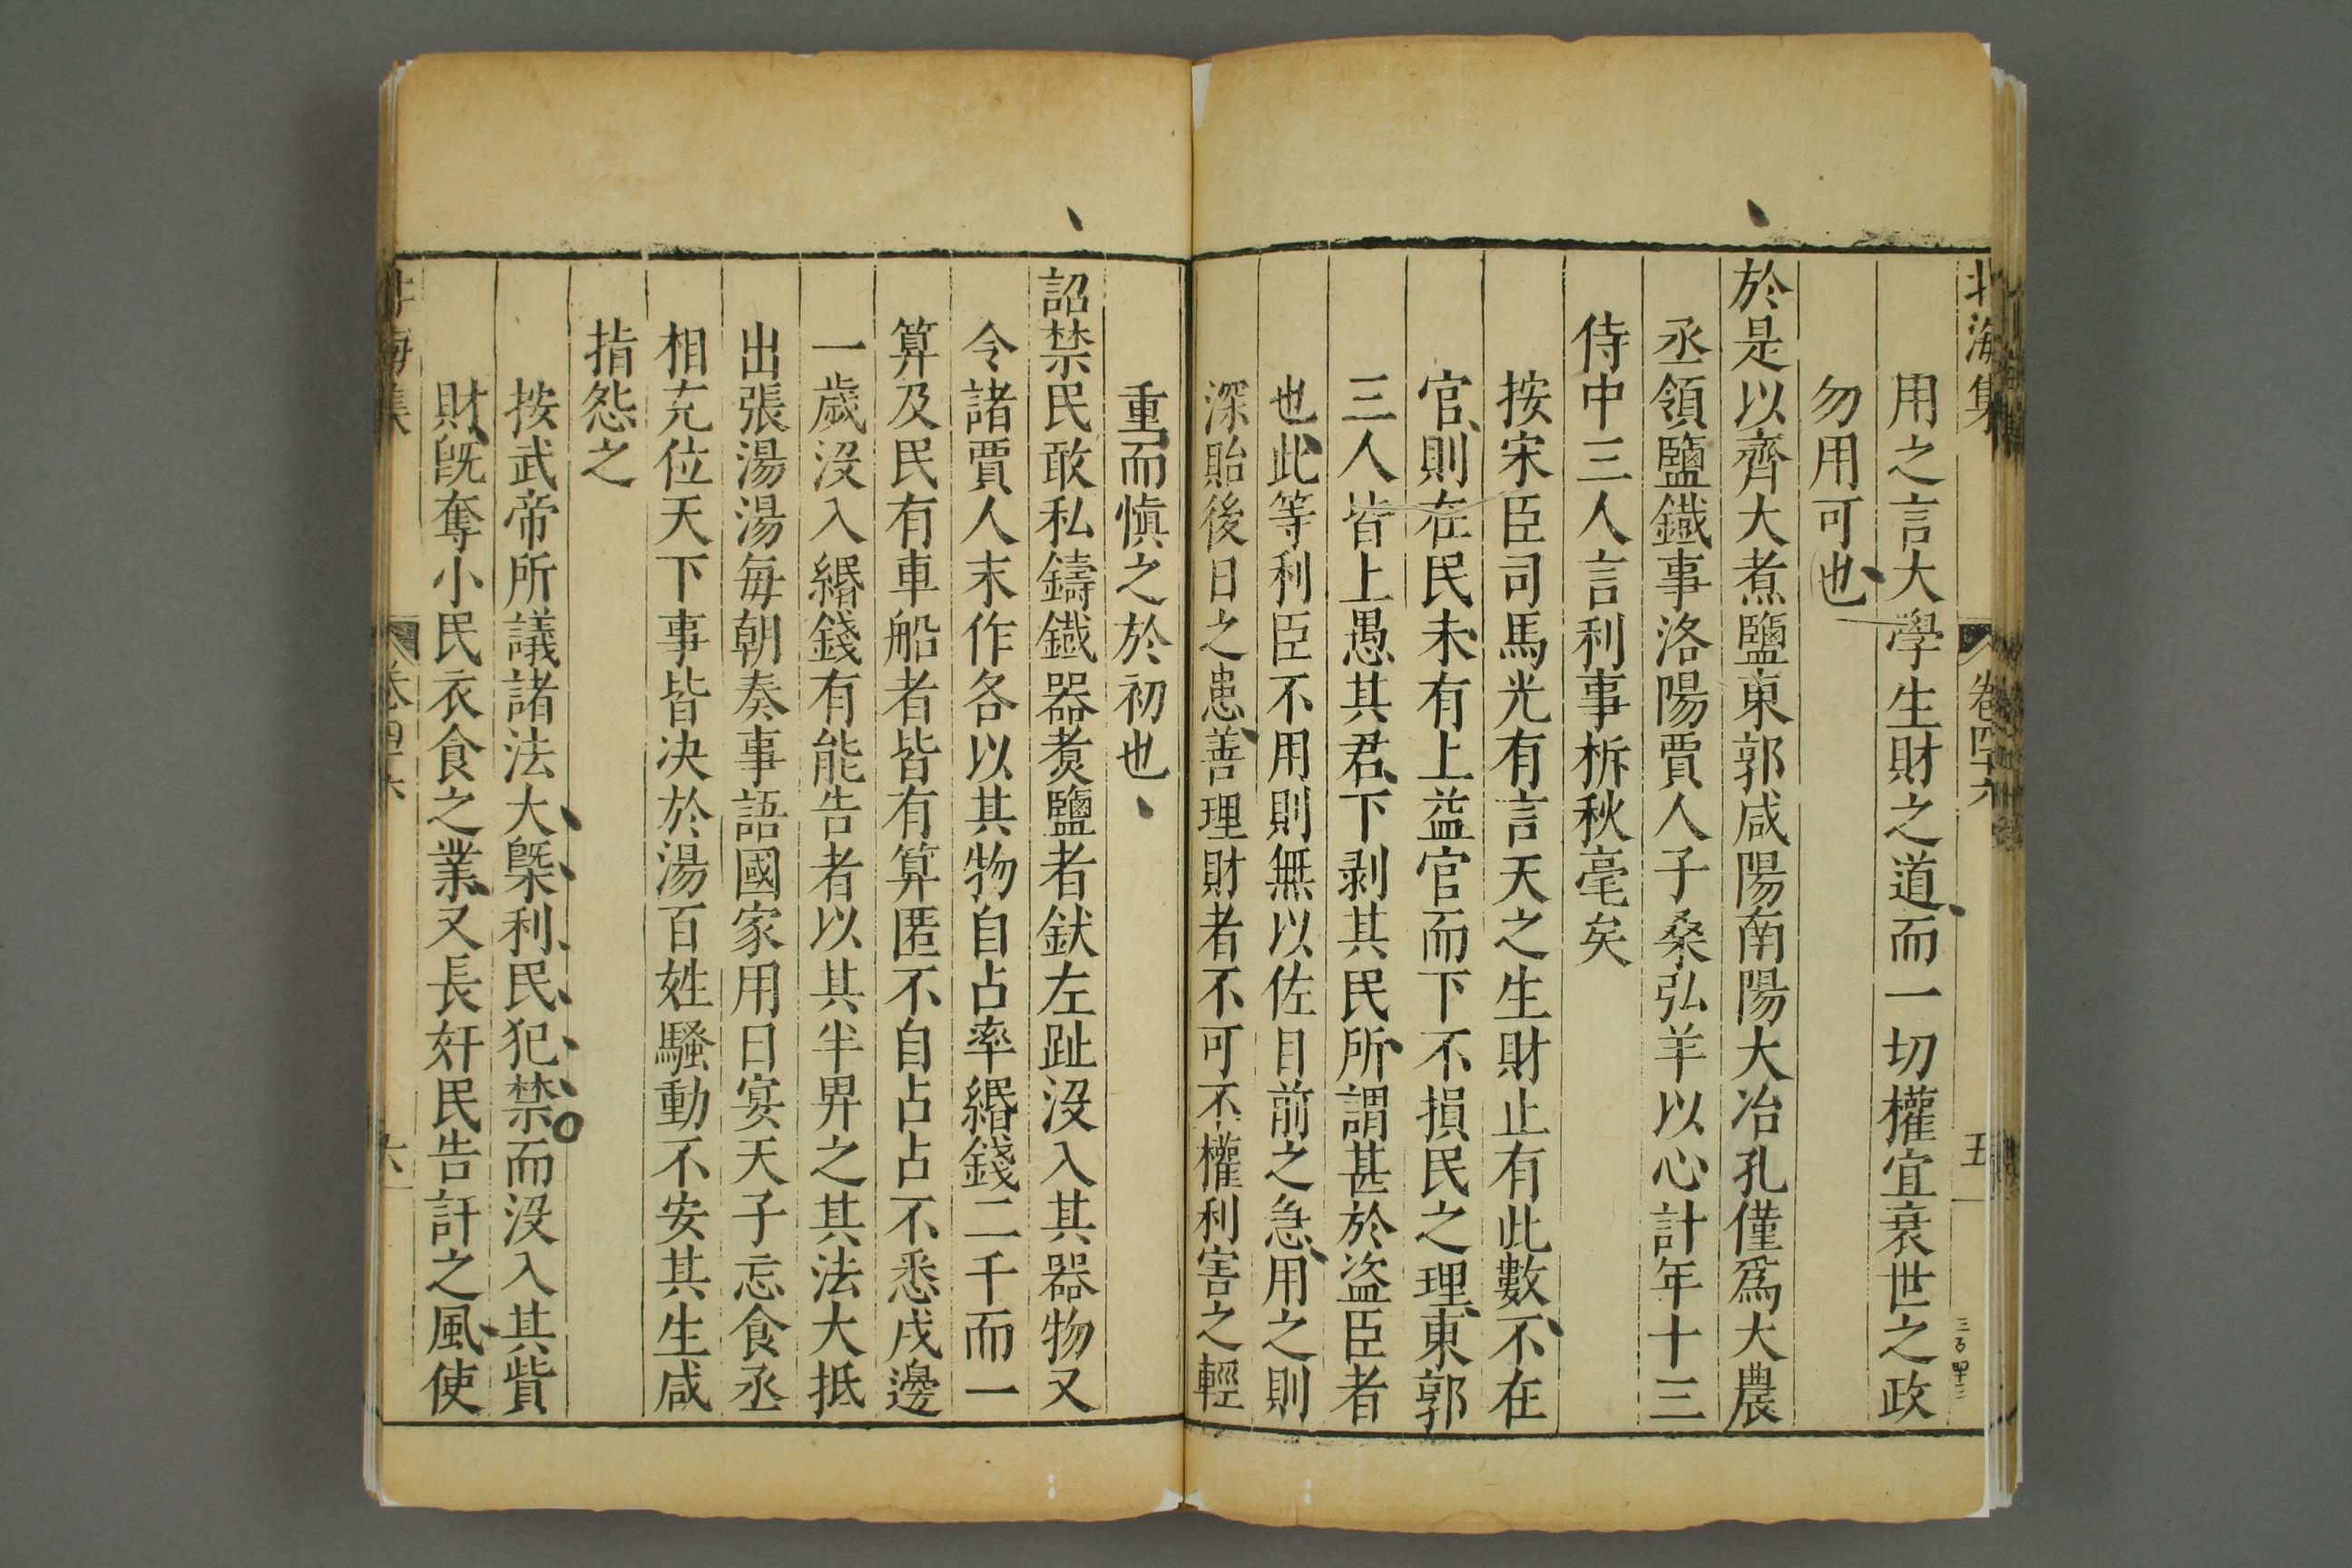 北海集 卷四十六 五
用之言大學生財之道而一切權宜衰世之政
勿用可也
於是以齊大煮鹽東郭咸陽南陽大冶孔僅爲大農
丞領鹽鐵事洛陽賈人子桑弘羊以心計年十三
侍中三人言利事析秋毫矣
按宋臣司馬光有言天之生財止有此數不在
官則在民未有上益官而下不損民之理東郭
三人皆上愚其君下剥其民所謂甚於盜臣者
也此等利臣不用則無以佐目前之急用之則
深貽後日之患善理財者不可不權利害之輕
重而愼之於初也
詔禁民敢私鑄鐵器煑鹽者釱左趾沒入其器物又
令諸賈人末作各以其物自占率緡錢二千而一
算及民有車船者皆有算匿不自占占不悉戍邊
一歲沒入緡錢有能告者以其半畀之其法大抵
出張湯湯每朝奏事語國家用日宴天子忘食丞
相充位天下事皆决於湯百姓騷動不安其生咸
指怨之
按武帝所議諸法大槩利民犯禁而沒入其貲
財旣奪小民衣食之業又長奸民告訐之風使
海集 卷四十六 六